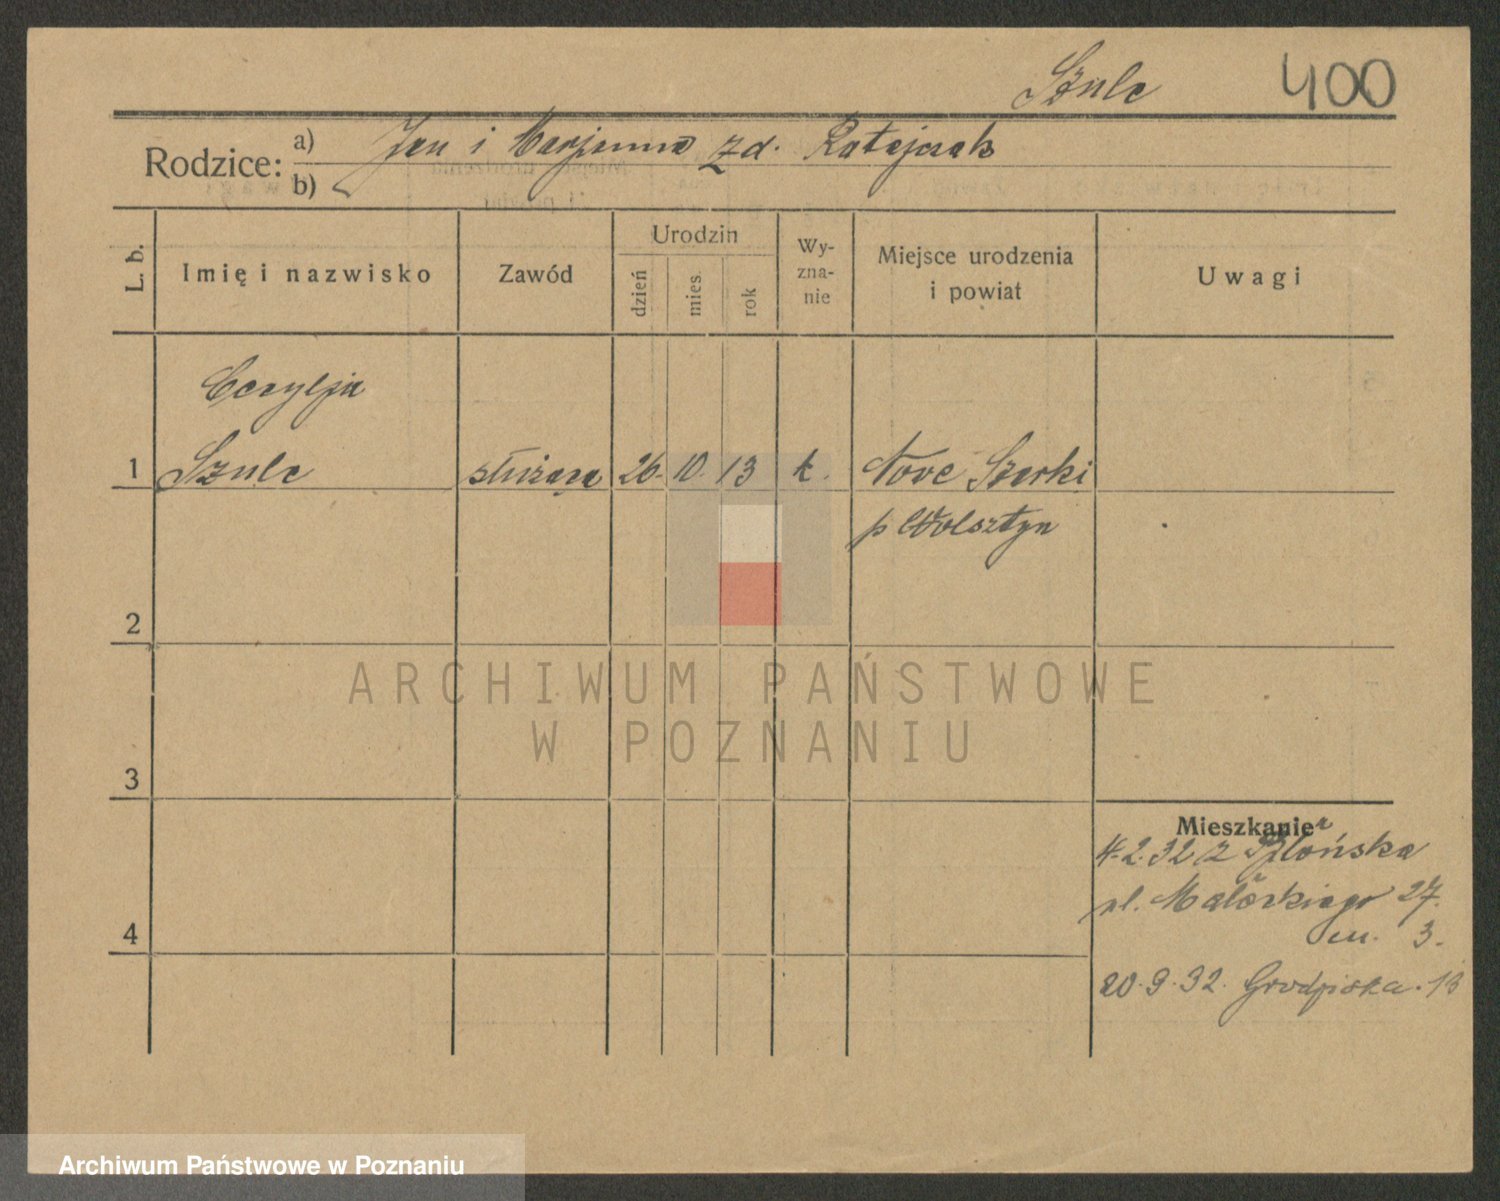 Szulc 400
Rodzice: a) Jan i Marjanna zd. Ratajczak
b)
L. b. Imię i nazwisko Zawód Urodzin dzień mies. rok Wyznanie Miejsce urodzenia i powiat Uwagi
Cecylja
1 Szulc służąca 26. 10. 13 k. Nove Szarki
p Wolsztyn
2
ARCHIWUM PAŃSTWOWE
W POZNANIU
3
Mieszkanie
4.2.32 z
ul. Małeckiego 27.
4 m. 3.
20.9.32. Grodziska. 13
Archiwum Państwowe w Poznaniu